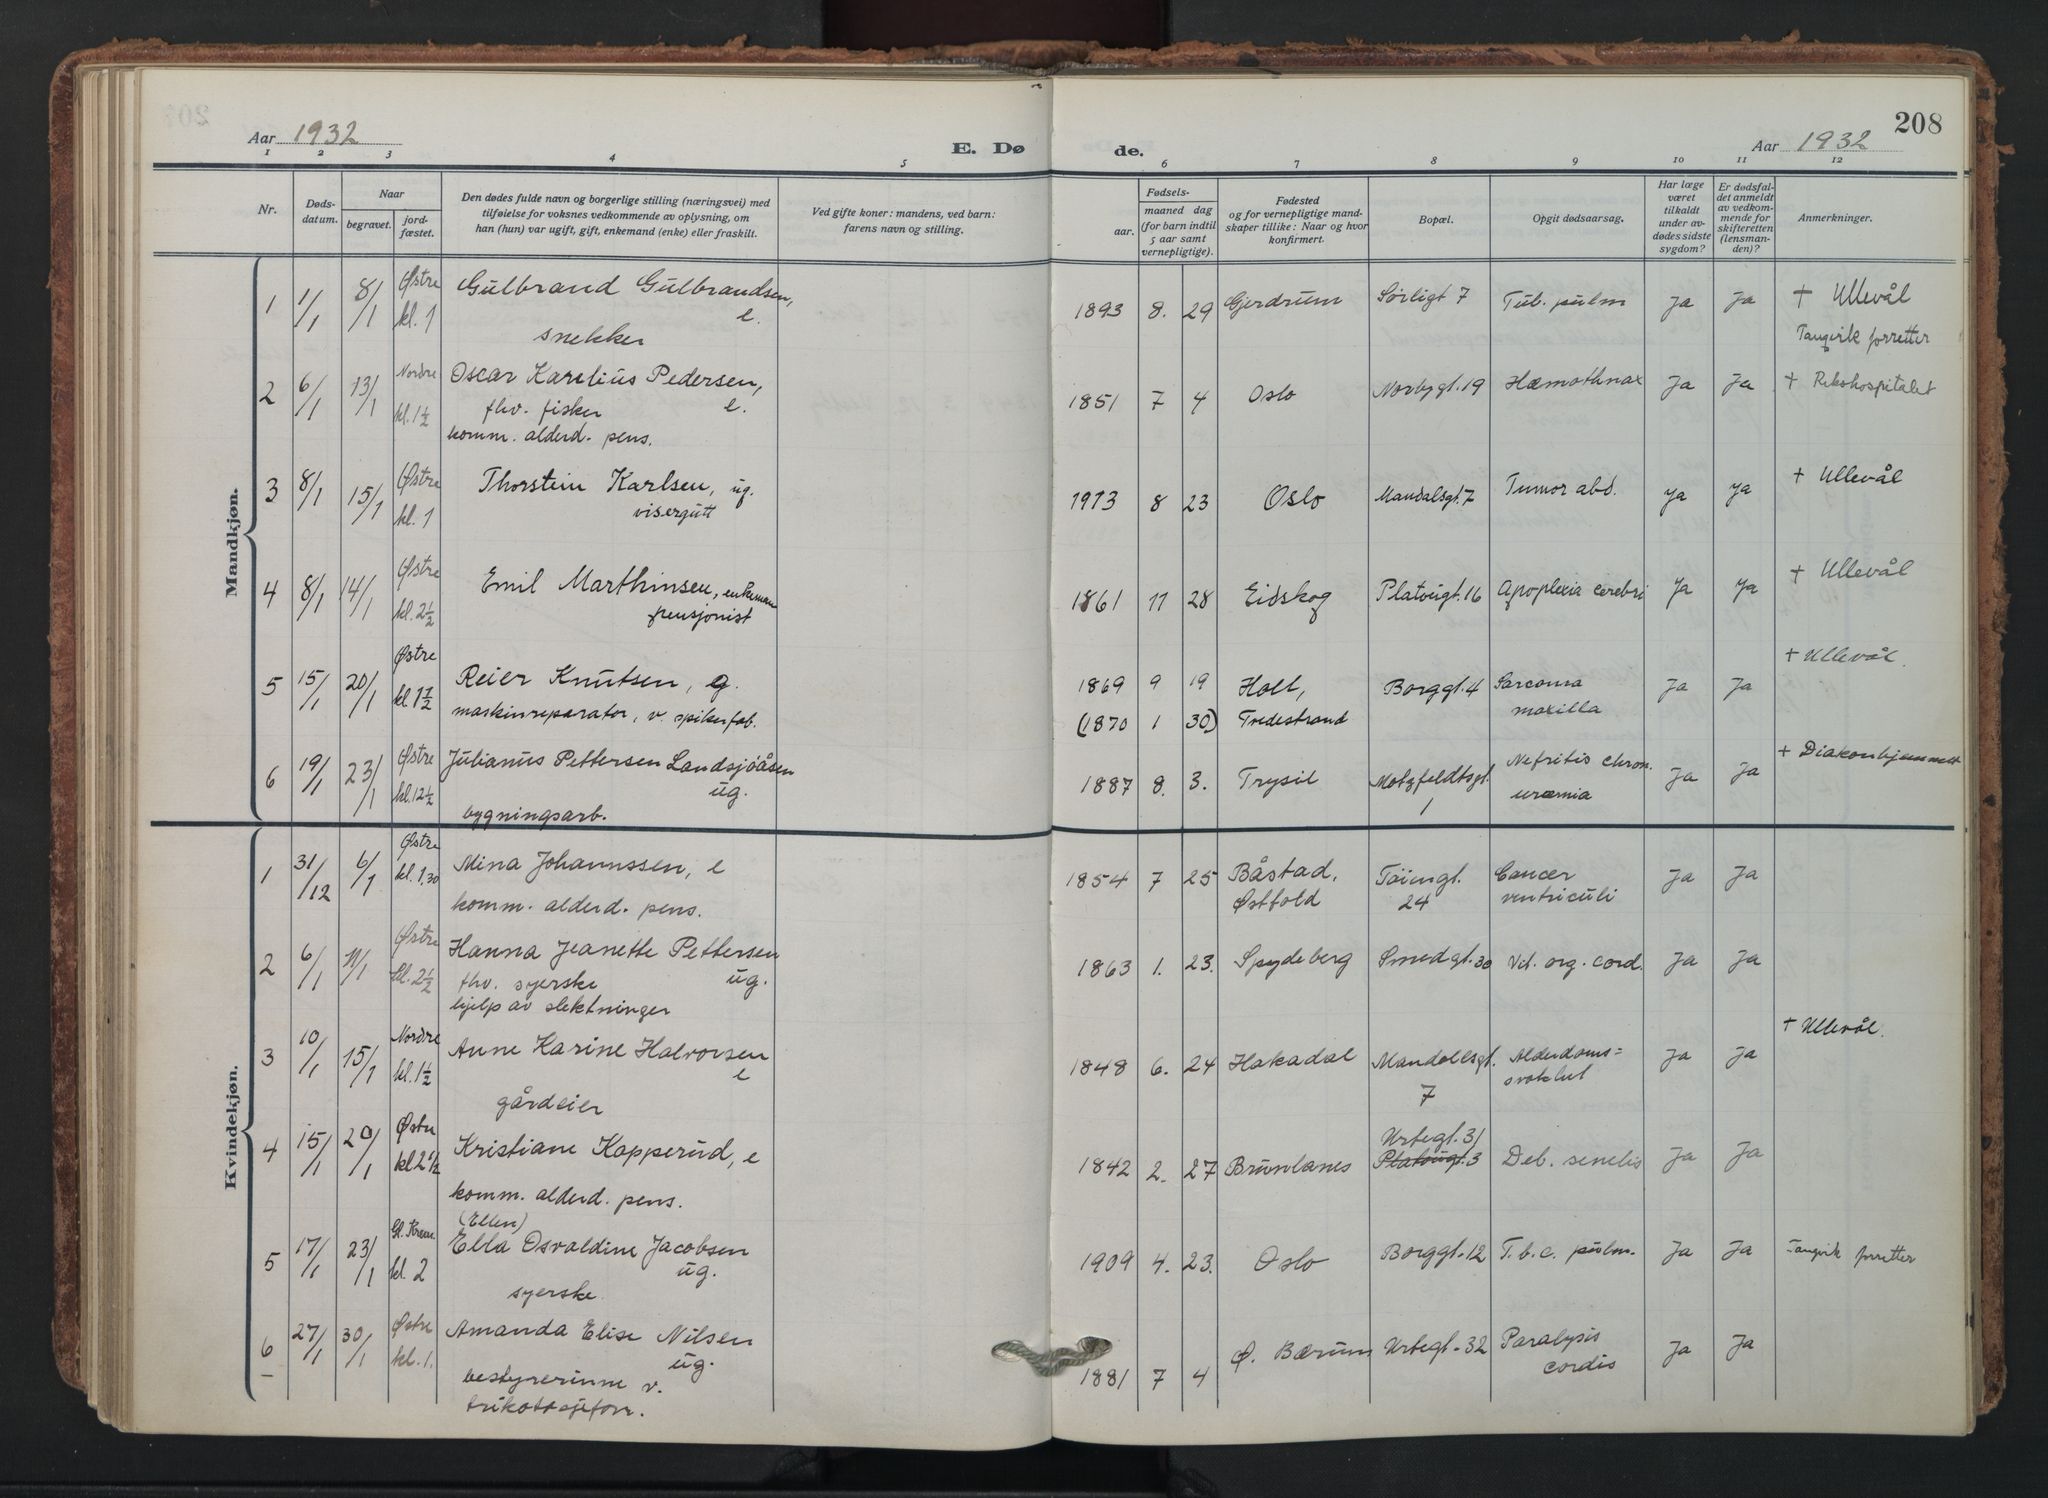 208
Aar 1932
E. Dø
de.
Aar 1932
1 2 3 4 5 6 7 8 9 10 11 12
Nr.
Døds-
datum.
Naar
begravet.
jord-
fæstet.
Den dødes fulde navn og borgerlige stilling (næringsvei) med
tilføielse for voksnes vedkommende av oplysning, om
han (hun) var ugift, gift, enkemand (enke) eller fraskilt.
Ved gifte koner: mandens, ved barn:
farens navn og stilling.
Fødsels-
aar.
maaned
dag
(for barn indtil
5 aar samt
vernepligtige).
Fødested
og for vernepligtige mand-
skaper tillike: Naar og hvor
konfirmert.
Bopæl.
Opgit dødsaarsag.
Har læge
været
tilkaldt
under av-
dødes sidste
sygdom?
Er dødsfal-
det anmeldt
av vedkom-
mende for
skifteretten
(lensman-
den)?
Anmerkninger.
Mandkjøn.
1 1/1 8/1 Østre kl. 1 Gulbrand Gulbrandsen, e. 1893 8. 29 Gjerdrum Sörligt 7 Tub. pulm Ja Ja + Ullevål
snekker Tangvik forretter
2 6/1 13/1 Nordre kl. 1½ Oscar Karelius Pedersen, e. 1851 7 4 Oslo Norbygt. 19 Hæmothrax Ja Ja + Rikshospitalet
fhv. fisker
komm. alderd. pens.
3 8/1 15/1 Østre kl. 1 Thorstein Karlsen, ug. 1913 8 23 Oslo Mandalsgt. 7 Tumor abd. Ja Ja + Ullevål
visergutt
4 8/1 14/1 Østre kl. 2½ Emil Marthinsen, enkeman 1861 11 28 Eidskog Platougt. 16 Apoplexia cerebri Ja Ja + Ullevål
pensjonist
5 15/1 20/1 Østre kl 1½ Reier Knutsen, g. 1869 9 19 Holt, Borggt. 4 Sarcoma Ja Ja + Ullevål.
maskinreparatør, v. spikerfab. (1870 1 30) Tvedestrand maxilla
6 19/1 23/1 Østre kl. 12½ Julianus Pettersen Landsjøåsen 1887 8. 3. Trysil Motzfeldtsgt. Nefritis chron. Ja Ja + Diakonhjemmet
ug. 1 uræmia
bygningsarb.
Kvindekjøn.
1 31/12 6/1 Østre kl. 1,30 Mina Johannssen, e 1854 7 25 Båstad, Töiengt. Cancer Ja Ja
komm. alderd. pens. Østfold 24 ventriculi
2 6/1 11/1 Østre kl. 2½ Hanna Jeanette Pettersen 1863 1. 23. Spydeberg Smedgt. 30 Vit. org. cord. Ja Ja
fhv. syerske ug.
hjelp av slektninger
3 10/1 15/1 Nordre kl. 1½ Anne Karine Halvorsen 1848 6. 24 Hakadal Mandalsgt. Alderdoms= Ja Ja + Ullevål.
e 7 svakhet
gårdeier
4 15/1 20/1 Østre kl 2½ Kristiane Kopperud, e 1842 2. 27 Brunlanes Urtegt. 31 Deb. senilis Ja Ja
Platougt. 3
komm. alderd. pens.
(Ellen)
5 17/1 23/1 Gl. Krem kl. 2 Ella Osvaldine Jacobsen 1909 4. 23. Oslo Borggt. 12 T. b. c. pulm. Ja Ja Tangvik forretter
ug.
syerske
6 27/1 30/1 Østre kl. 1. Amanda Elise Nilsen 1881 7 4 Ø. Bærum Urtegt. 32 Paralysis Ja Ja
ug. cordis
bestyrerinne v.
trikotasjeforr.